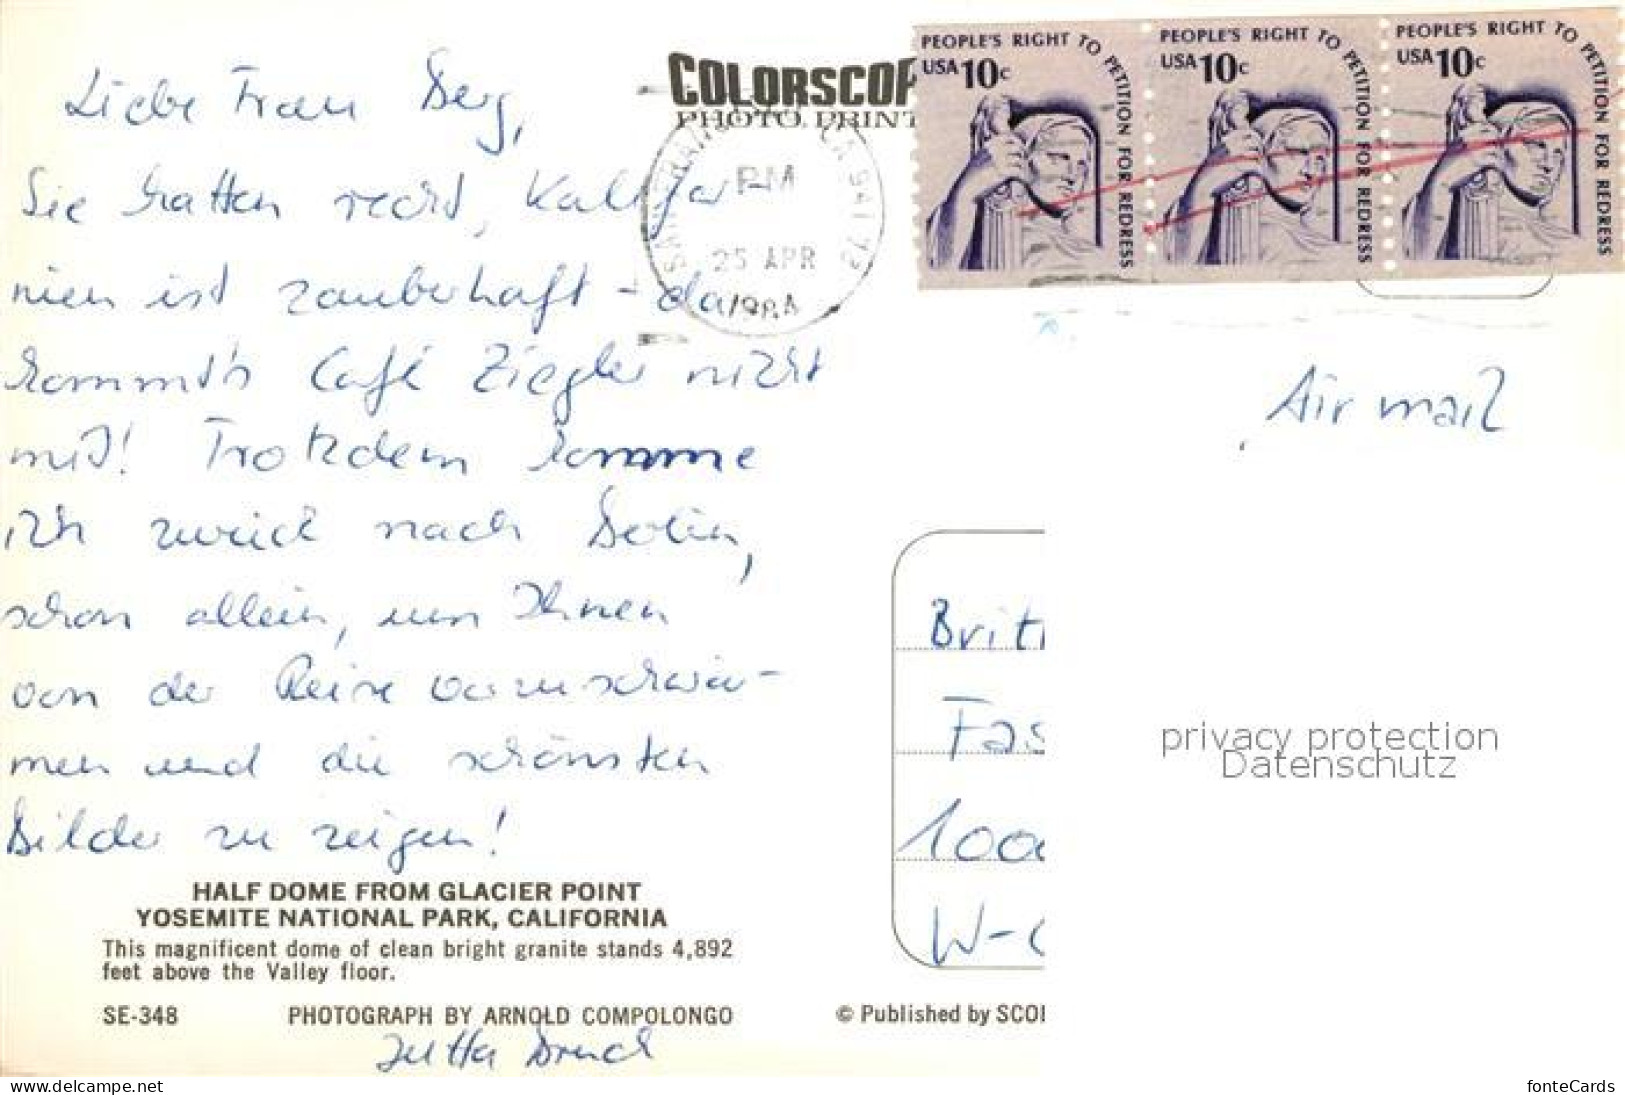 COLORSCOP
PHOTO PRINT
PEOPLE'S RIGHT TO PETITION FOR REDRESS
USA 10c
PEOPLE'S RIGHT TO PETITION FOR REDRESS
USA 10c
PEOPLE'S RIGHT TO PETITION FOR REDRESS
USA 10c
SAN FRAN CA 941
PM
25 APR
198
Liebe Frau Berg,
Sie hatten recht, Kalifor
nien ist zauberhaft - da
kommt's Café Ziegler nicht
mit! Trotzdem komme
ich zurück nach Berlin,
schon allein, um Ihnen
von der Reise vorzuschwär-
men und die schönsten
Bilder zu zeigen!
Airmail
Brit
Fas
100
W-
privacy protection
Datenschutz
HALF DOME FROM GLACIER POINT
YOSEMITE NATIONAL PARK, CALIFORNIA
This magnificent dome of clean bright granite stands 4,892
feet above the Valley floor.
SE-348 PHOTOGRAPH BY ARNOLD COMPOLONGO
© Published by SCO
Jutta
www.delcampe.net
fonteCards